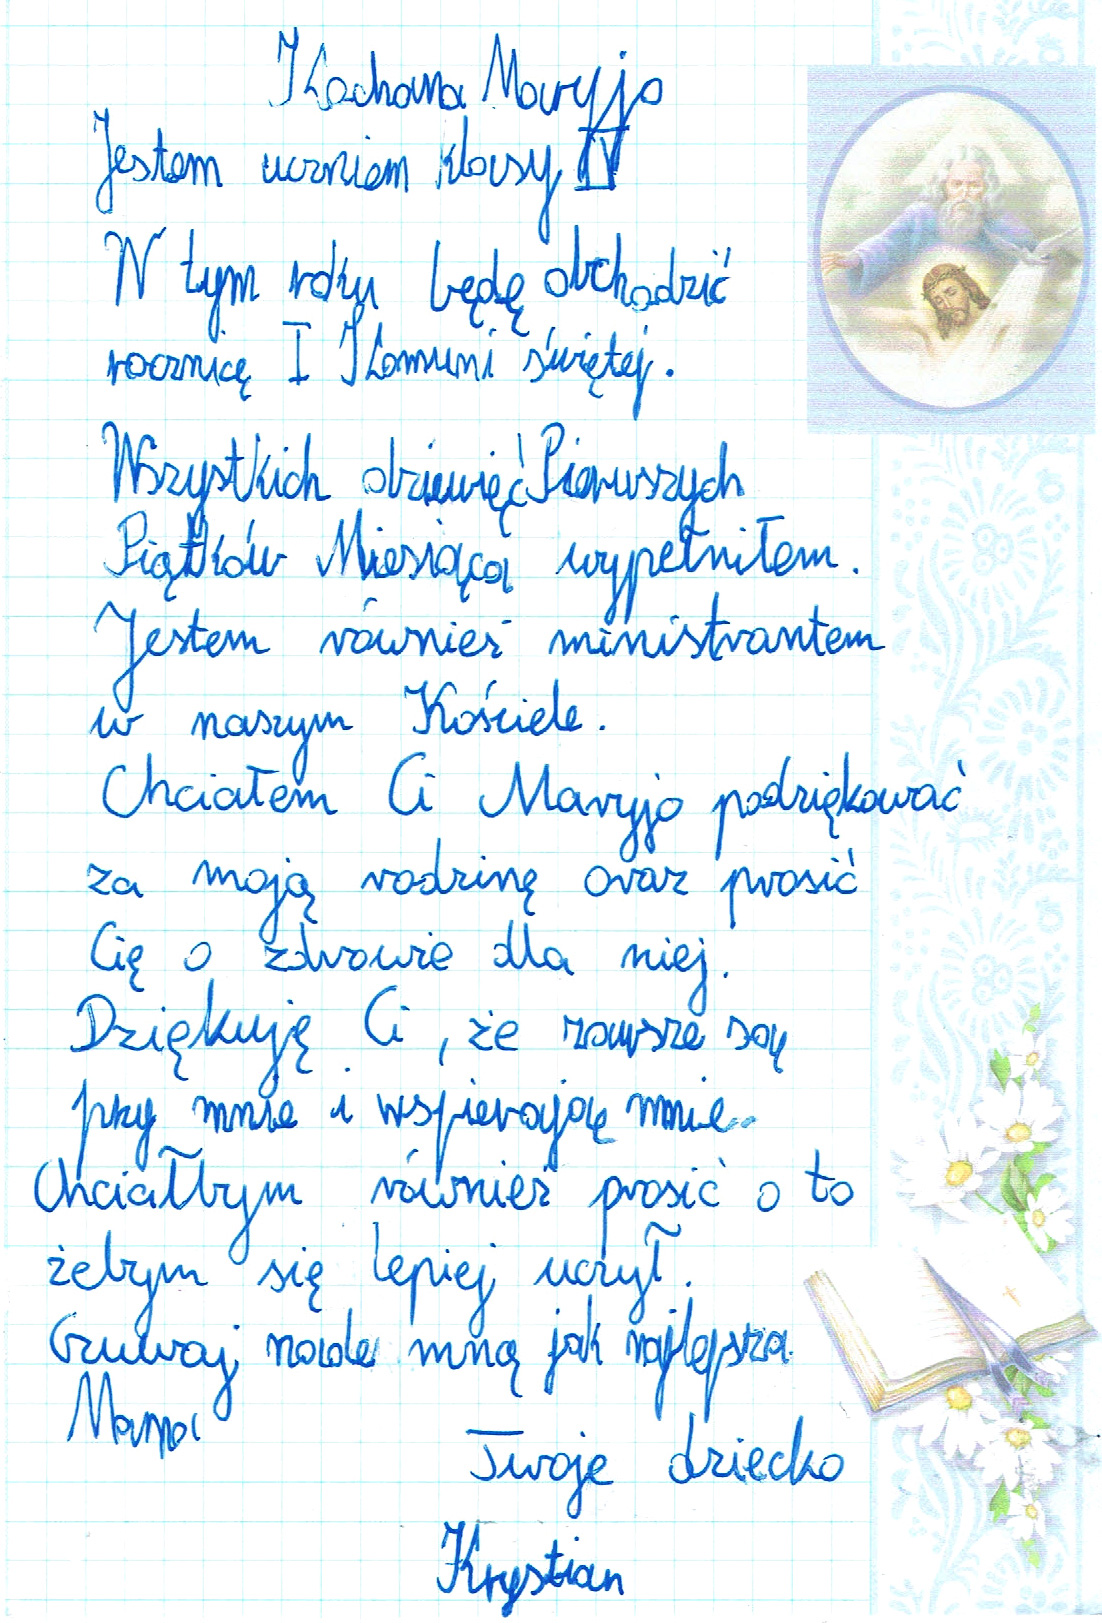 Kochana Maryjo
Jestem uczniem klasy IV
W tym roku będę obchodzić
rocznicę I Komuni świętej.
Wszystkich dziewięć Pierwszych
Piątków Miesiąca wypełniłem.
Jestem również ministrantem
w naszym Kościele.
Chciałem Ci Maryjo podziękować
za moją rodzinę oraz prosić
Cię o zdrowie dla niej.
Dziękuję Ci, że zawsze są
przy mnie i wspierają mnie..
Chciałbym również prosić o to
żebym się lepiej uczył.
Czuwaj nade mną jak najlepsza
Mama
Twoje dziecko
Krystian